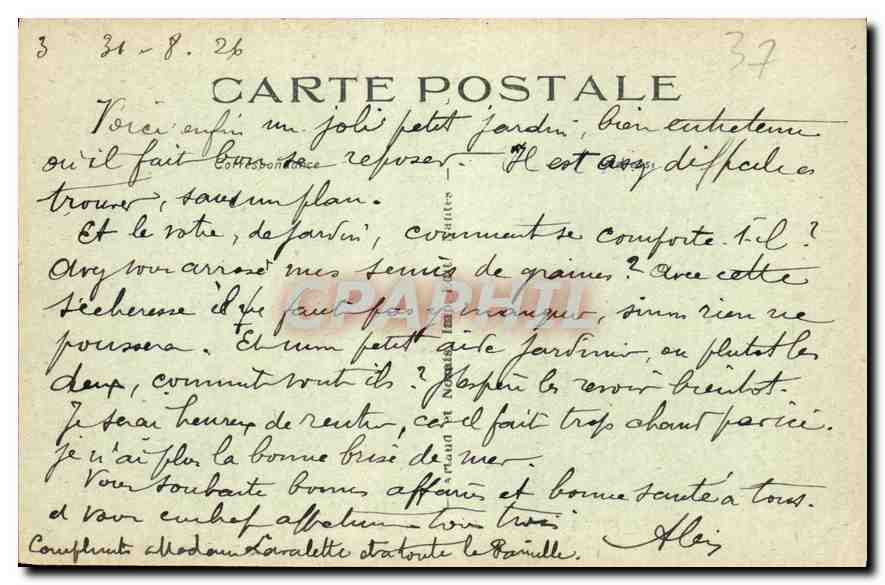 3 31-8.26
37
CARTE POSTALE
Correspondance
Voici enfin un joli petit jardin, bien entretenu
où il fait bon se reposer. Il est assez difficile a
trouver, sans un plan.
Et le votre, de jardin, comment se comporte-t-il ?
Avez vous arrosé mes semis de graines ? Avec cette
sécheresse il ne faut pas y manquer, sinon rien ne
poussera. Et mon petit aide jardinier, ou plutot les
deux, comment vont ils ? J'espère les revoir bientot.
Je serai heureux de rentrer, car il fait trop chaud par ici.
je n'ai plus la bonne brise de mer.
Vous souhaite bonnes affaires et bonne santé à tous.
et vous embrasse tous trois
Alex
Compliments a Madame Lavalette et a toute la Famille.
CPAPHIL